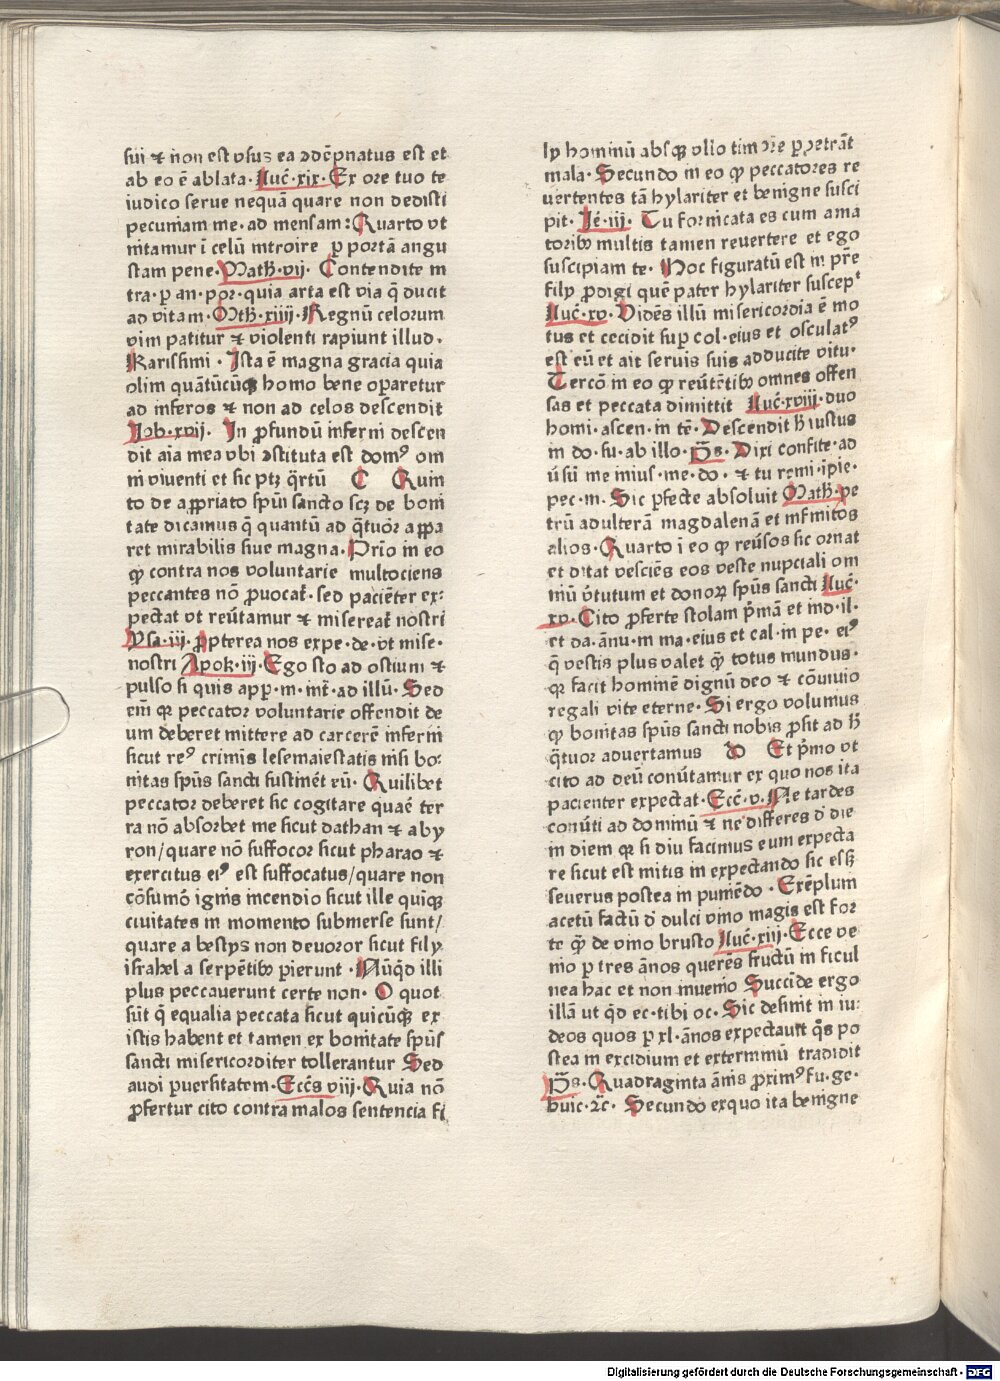 sui ⁊ non est vsus ea ↄdēpnatus est et
ab eo ē ablata. Luč. xix. Ex ore tuo te
iudico serue nequā quare non dedisti
pecuniam me. ad mensam: Quarto vt
nitamur ī celū introire ꝑ portā angu
stam pene. Math. vij. Contendite in
tra. ꝑ an. por. quia arta est via q̄ ducit
ad vitam. Mth. xiiij. Regnū celorum
vim patitur ⁊ violenti rapiunt illud.
Karissimi. Ista ē magna gracia quia
olim quātūcūqꝫ homo bene oꝑaretur
ad inferos ⁊ non ad celos descendit
Job. xvij. In ꝓfundū inferni descen
dit aīa mea vbi ↄstituta est domꝰ om
ni viventi et sic ptꝫ q̄rtū C Quin
to de aꝓpriato spūi sancto scꝫ de boni
tate dicamus q̄ quantū ad q̄tuōr aꝑpa
ret mirabilis siue magna. Prīo in eo
ꝙ contra nos voluntarie multociens
peccantes nō ꝓuocat. sed paciēter ex:
pectat vt reūtamur ⁊ misereat nostri
Ysa. iij. ꝓpterea nos expe. de. vt mise.
nostri Apok. iij. Ego sto ad ostium ⁊
pulso si quis apꝑ. m. mt̄. ad illū. Sed
em̄ qꝛ peccator voluntarie offendit de
um deberet mittere ad carcerē inferni
sicut reꝰ criminis lesemaiestatis nisi bo:
nitas spūs sancti sustinēt eū. Quilibet
peccator deberet sic cogitare quaē ter
ra nō absorbet me sicut dathan ⁊ aby
ron/quare nō suffocor sicut pharao ⁊
exercitus eiꝰ est suffocatus/quare non
cōsumō ignis incendio sicut ille quiqꝫ
ciuitates in momento submerse sunt/
quare a bestys non deuoror sicut fily
israhel a serpētibꝫ ꝑierunt. Nūq̄d illi
plus peccauerunt certe non. O quot
sūt q̄ equalia peccata sicut quicūqꝫ ex
istis habent et tamen ex bonitate spūs
sancti misericorditer tollerantur Sed
audi ꝑuersitatem. Eccs̄ viij. Quia nō
ꝓfertur cito contra malos sentencia fi
ly hominū absqꝫ vllo timore ꝑpetrāt
mala. Secundo in eo ꝙ peccatores re
uertentes tā hylariter et benigne susci
pit. Jē. iij. Tu fornicata es cum ama
toribꝫ multis tamen reuertere et ego
suscipiam te. Hoc figuratū est in pr̄e
fily ꝓdigi quē pater hylariter suscept
Luč. xv. Vidēs illū misericordia ē mo
tus et cecidit suꝑ col. eius et osculatꝰ
est eū et ait seruis suis adducite vitu.
Tercō in eo ꝙ reūtētibꝫ omnes offen
sas et peccata dimittit Luč. xviij. duo
homi. ascen. in tē. Descendit h̄ iustus
in do. su. ab illo. P̄s. Dixi confite. ad
ūsū me mius. me. do. ⁊ tu remi. ipie.
pec. m. Sic ꝑfecte absoluit Math. pe
trū adulterā magdalenā et infinitos
alios. Quarto ī eo ꝙ reūsos sic ornat
et ditat vesciēs eos veste nupciali om
niū v̄tutum et donoꝝ spūs sancti Luč.
xv. Cito ꝓferte stolam p̄mā et ind. il.
et da. ānu. in ma. eius et cal. in pe. eiꝰ
q̄ vestis plus valet q̄ꝫ totus mundus.
qꝛ facit hominē dignū deo ⁊ cōuiuio
regali vite eterne. Si ergo volumus
ꝙ bonitas spūs sancti nobis ꝓsit ad h̄
q̄tuor aduertamus D Et p̄mo vt
cito ad deū conūtamur ex quo nos ita
pacienter expectat. Ecc̄. v. Ne tardes
conūti ad dominū ⁊ ne differes d̄ die
in diem qꝛ si diu facimus eum expecta
re sicut est mitis in expectando sic esꝫ
seuerus postea in puniēdo. Exēplum
acetū factū d̄ dulci vino magis est for
te q̄ꝫ de vino brusto Luč. xiij. Ecce ve
nio ꝑ tres ānos querēs fructū in ficul
nea hac et non inuenio Succide ergo
illā ut q̄d ec. tibi oc. Sic definit in iu:
deos quos ꝑ xl. ānos expectauit q̄s po
stea in excidium et exterminiū tradidit
P̄s. Quadraginta ānis ꝓximꝰ fu. ge.
huic. ꝛč. Secundo exquo ita benigne
Digitalisierung gefördert durch die Deutsche Forschungsgemeinschaft - DFG